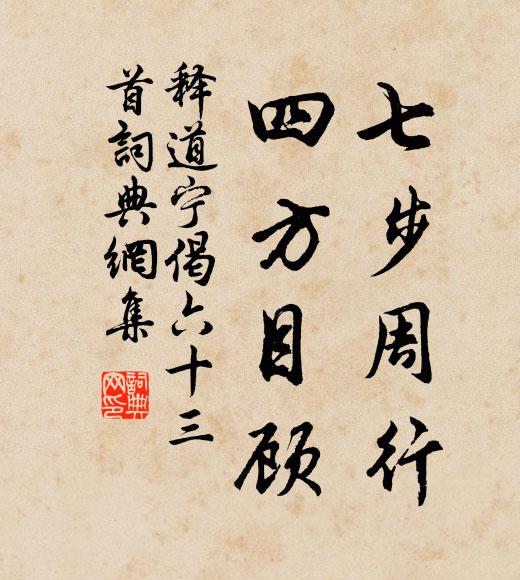 七步周行
四方目顾
释道宁偈六十三
首詞典網集
詞典
网印